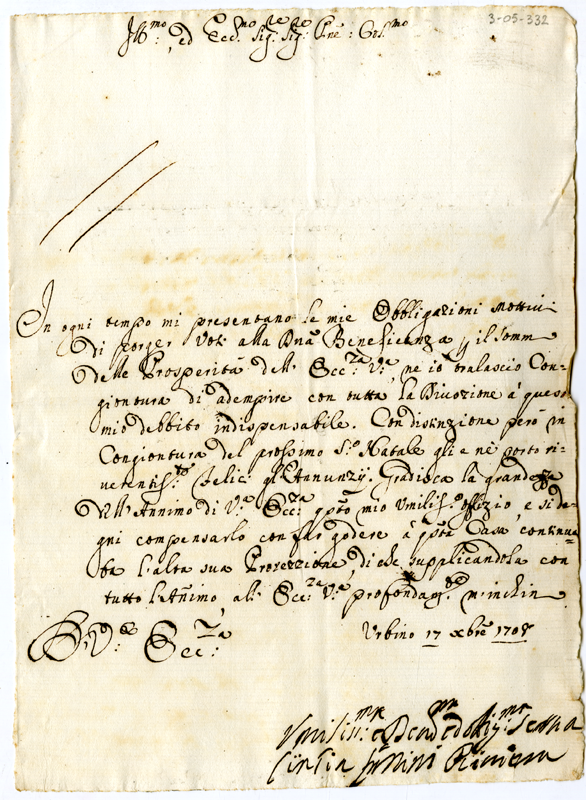 3-05-332
Ill:mo, ed Ecc:mo Sig:re Sig:re Pne: Col:mo
In ogni tempo mi presentano le mie Obbligazioni Mottivi
di porger Voti alla Dna Beneficenza p il Somm
delle Prosperità dell' Ecc:za V:a, ne io tralascio Con-
giontura di adempire con tutta la Divozione à questo
mio debbito indispensabile. Con distinzione però in
Congiontura del prossimo S:o Natale gli e ne porto ri-
verentis:te felici gl'Annunzij. Gradisca la grandezza
dell'Annimo di V:a Ecc:za qsto mio Umilis:o offizio, e si de-
gni compensarlo con far godere à qsta Casa continua-
ta l'alta sua Protezzione, di che supplicandola con
tutto l'Animo all' Ecc:za V:a profondam:te m'inchino
Di V: Ecc:za
Urbino 17 Xbre 1708
Umiliss:ma e Dev:ma ed Obblig:ma Serva
Cintia Riviera